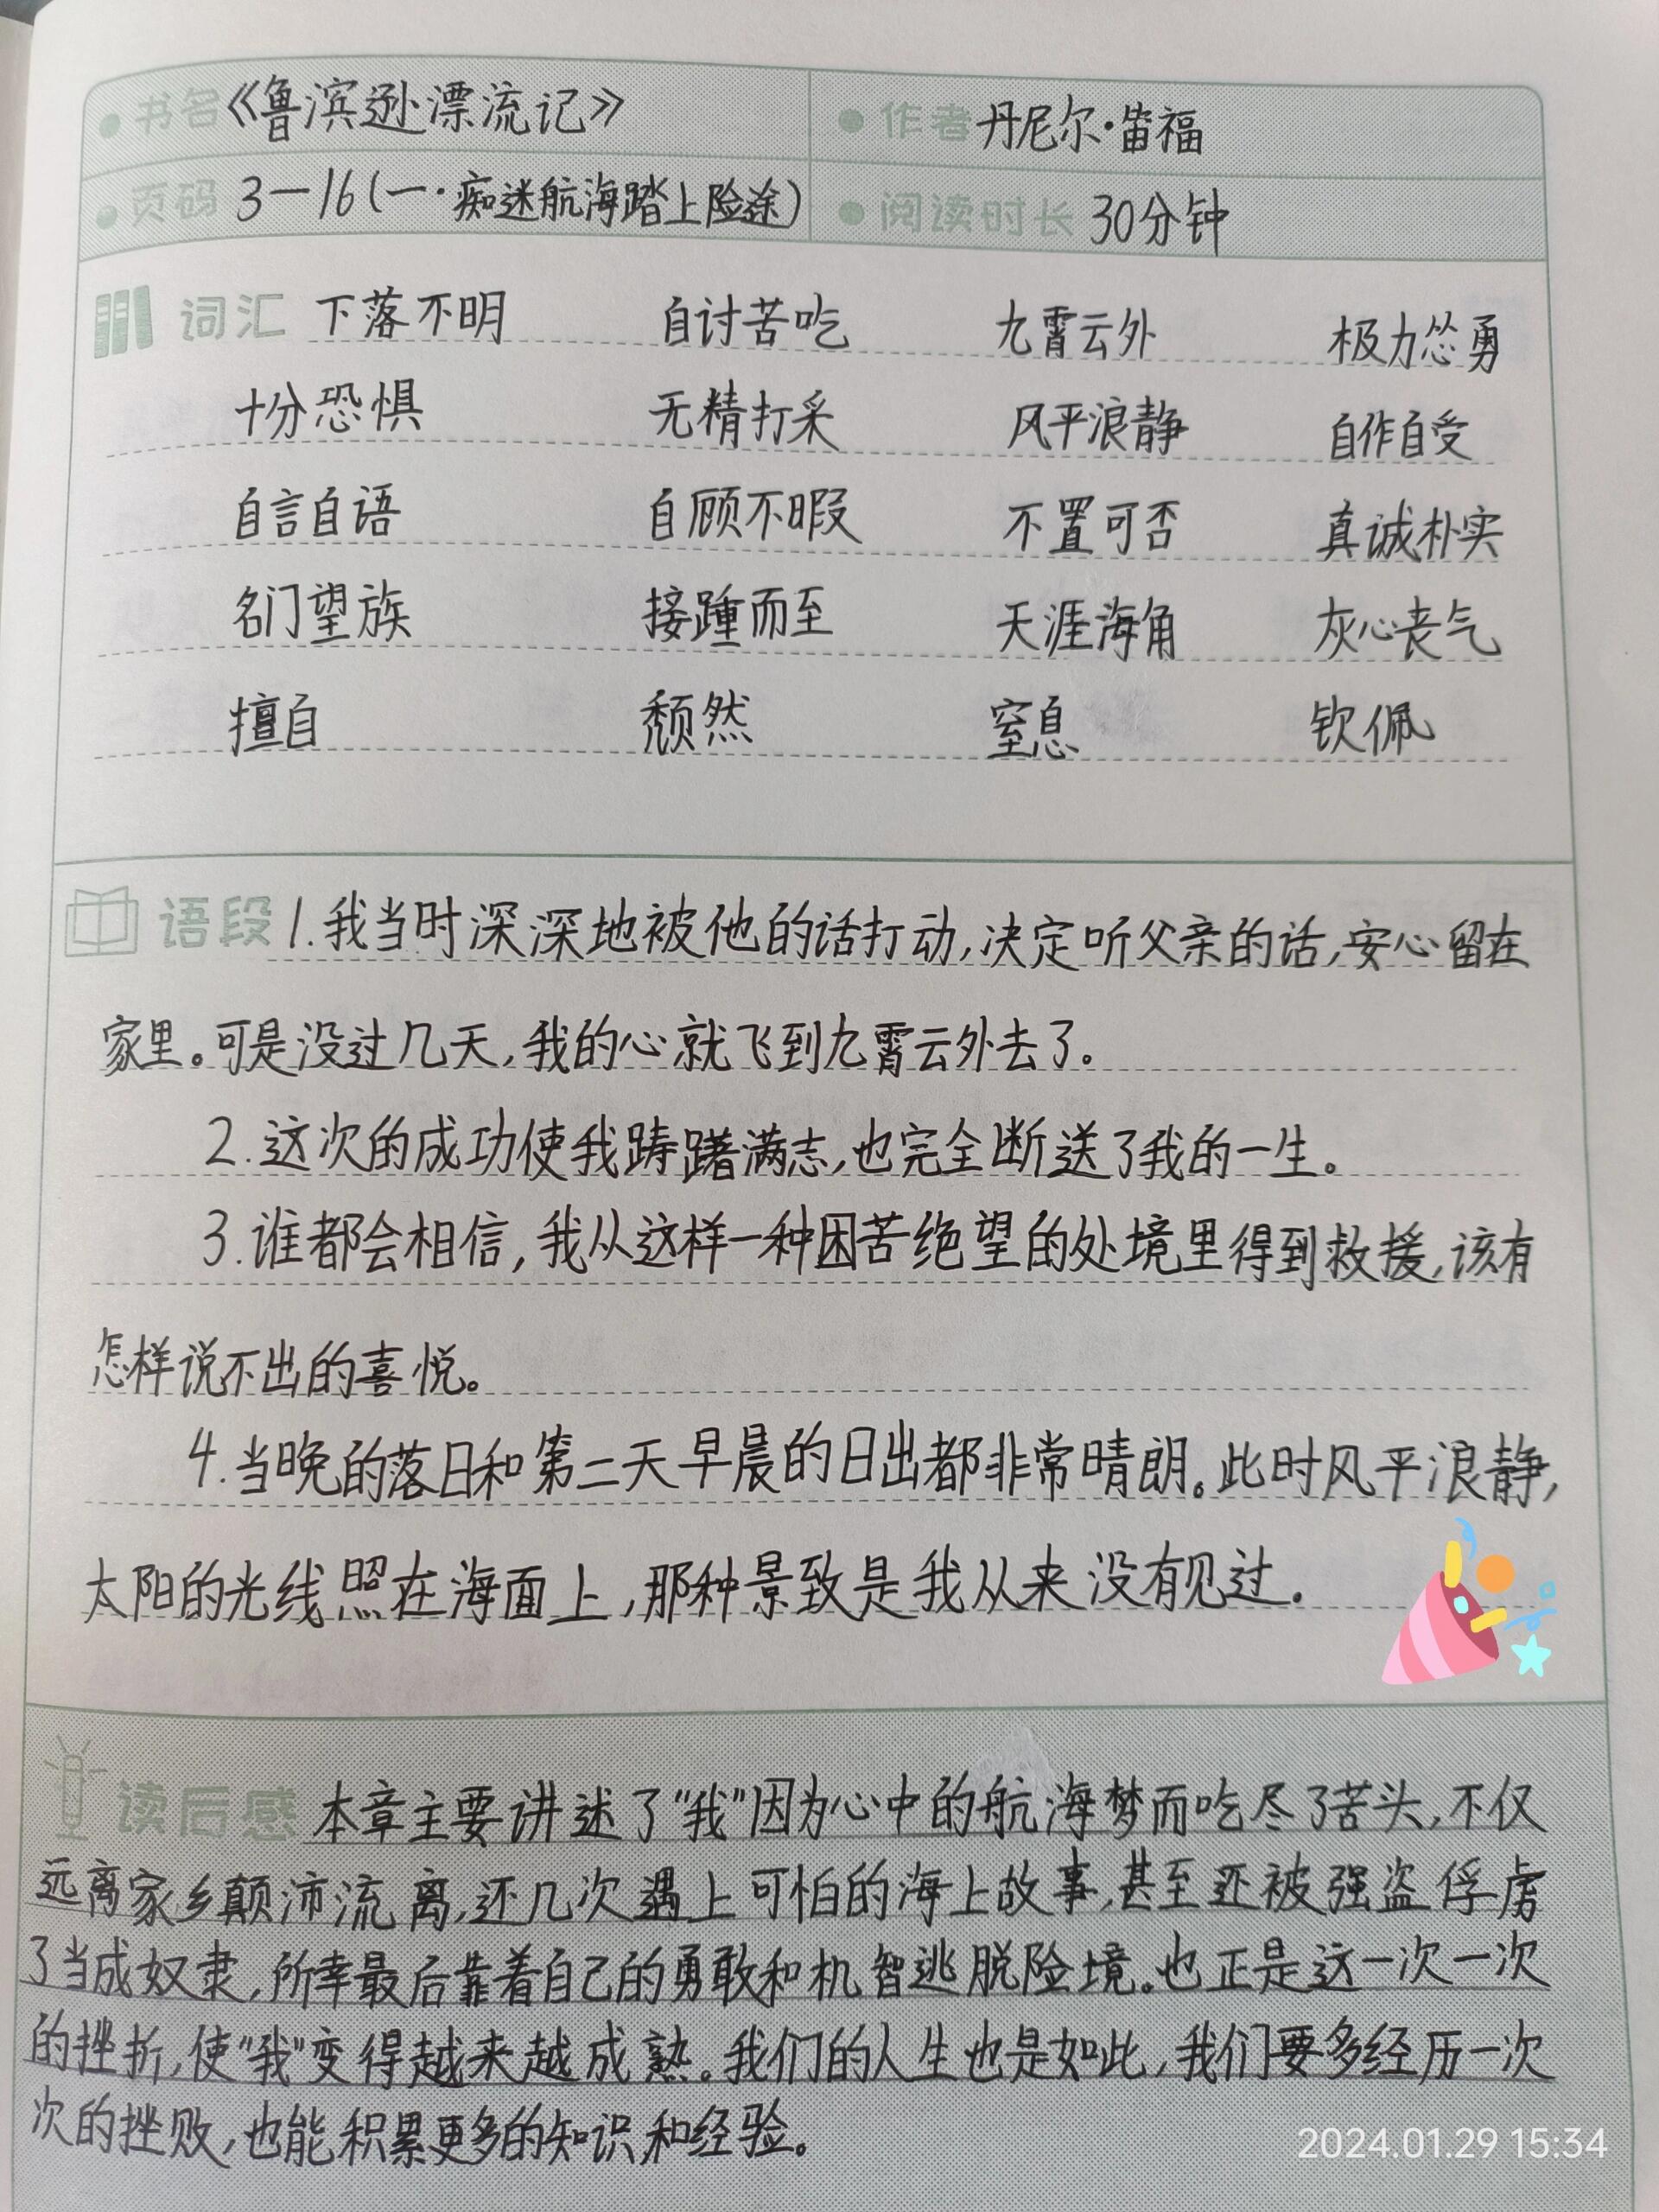 书名《鲁滨逊漂流记》 作者 丹尼尔·笛福
页码 3—16(一·痴迷航海踏上险途) 阅读时长 30分钟
词汇 下落不明 自讨苦吃 九霄云外 极力怂勇
十分恐惧 无精打采 风平浪静 自作自受
自言自语 自顾不暇 不置可否 真诚朴实
名门望族 接踵而至 天涯海角 灰心丧气
擅自 颓然 窒息 钦佩
语段 1.我当时深深地被他的话打动,决定听父亲的话,安心留在
家里。可是没过几天,我的心就飞到九霄云外去了。
2.这次的成功使我踌躇满志,也完全断送了我的一生。
3.谁都会相信,我从这样一种困苦绝望的处境里得到救援,该有
怎样说不出的喜悦。
4.当晚的落日和第二天早晨的日出都非常晴朗。此时风平浪静,
太阳的光线照在海面上,那种景致是我从来没有见过.
读后感 本章主要讲述了“我”因为心中的航海梦而吃尽了苦头,不仅
远离家乡颠沛流离,还几次遇上可怕的海上故事,甚至还被强盗俘虏
了当成奴隶,所幸最后靠着自己的勇敢和机智逃脱险境。也正是这一次一次
的挫折,使“我”变得越来越成熟。我们的人生也是如此,我们要多经历一次
次的挫败,也能积累更多的知识和经验。
2024.01.29 15:34